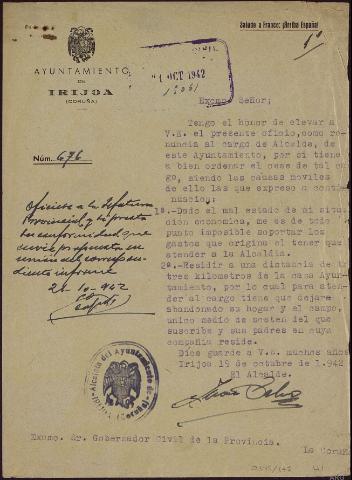 Saludo a Franco: ¡Arriba España!
1º
AYUNTAMIENTO
DE
IRIJOA
(CORUÑA)
OCT 1942
Núm. 676
Excmo. Señor;
Tengo el honor de elevar a
V.E. el presente oficio, como re-
nuncia al cargo de Alcalde, de
este Ayuntamiento, por si tiene
a bien ordenar el cese de tal car
go, siendo las causas moviles
de ello las que expreso a conti-
nuacion:
1ª.-Dado el mal estado de mi situa
cion economica, me es de todo
punto imposible soportar los
gastos que origina el tener que
atender a la Alcaldia.
2ª.-Residir a una distancia de
tres kilometros de la casa Ayun-
tamiento, por lo cual para aten-
der al cargo tiene que dejar
abandonado su hogar y el campo,
unico medio de sosten del que
suscribe y sus padres en cuya
compañia reside.
Dios guarde a V.E. muchos años
Irijoa 19 de octubre de 1.942
El Alcalde.
Oficiese a la Jefatura
Provincial
conformidad que
informe
21-10-942
Alcaldia del Ayuntamiento de Irijoa (Coruña)
Excmo. Sr. Gobernador Civil de la Provincia.
La Coruña